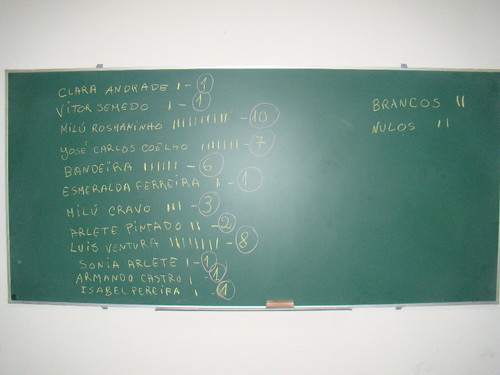 CLARA ANDRADE I - 1
VITOR SEMEDO I - 1
MILÚ ROSMANINHO IIIIIIIIII - 10
YOSÉ CARLOS COELHO IIIIIII - 7
BANDEIRA IIIIII - 6
ESMERALDA FERREIRA I - 1
MILÚ CRAVO III - 3
ARLETE PINTADO II - 2
LUIS VENTURA IIIIIIII - 8
SONIA ARLETE I - 1
ARMANDO CASTRO I - 1
ISABEL PEREIRA I - 1
BRANCOS II
NULOS II